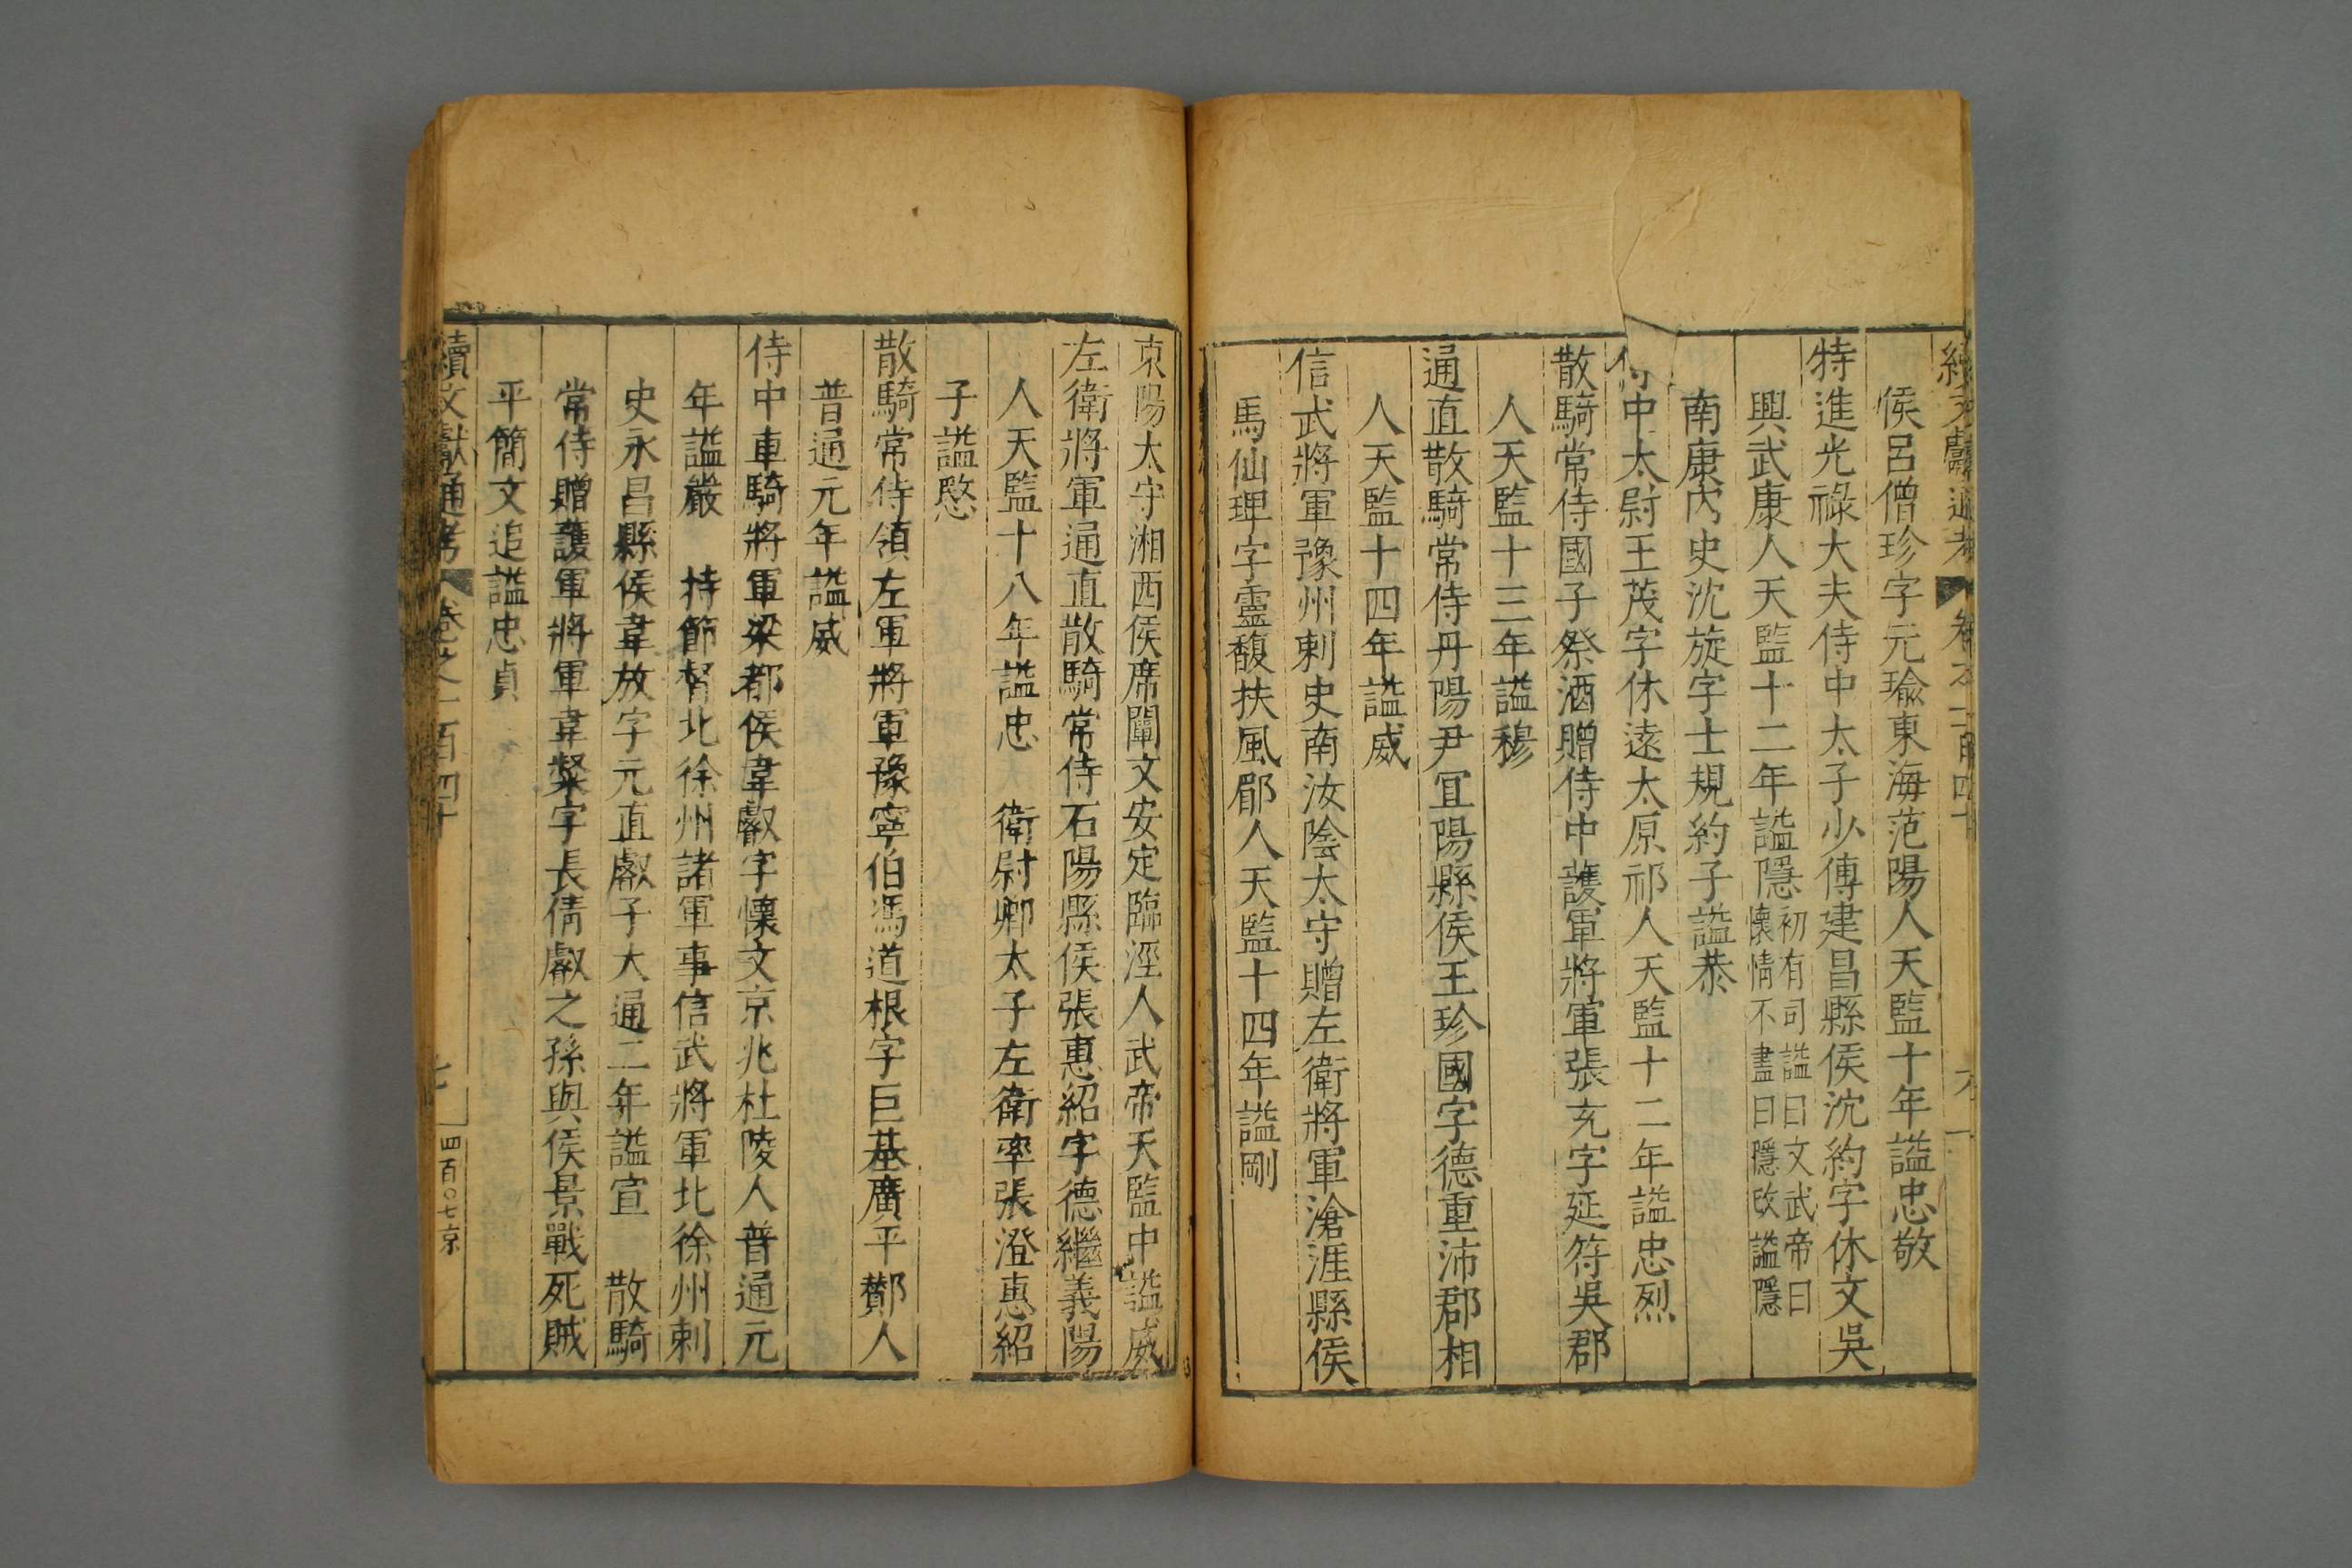 續文獻通考 卷之一百四十 六
侯呂僧珍字元瑜東海范陽人天監十年謚忠敬
特進光祿大夫侍中太子少傅建昌縣侯沈約字休文吳
興武康人天監十二年謚隱初有司謚曰文武帝曰懷情不盡曰隱改謚隱
南康內史沈旋字士規約子謚恭
侍中太尉王茂字休遠太原祁人天監十二年謚忠烈
散騎常侍國子祭酒贈侍中護軍將軍張充字延符吳郡
人天監十三年謚穆
通直散騎常侍丹陽尹冝陽縣侯王珍國字德重沛郡相
人天監十四年謚威
信武將軍豫州刺史南汝陰太守贈左衛將軍滄涯縣侯
馬仙琕字靈馥扶風郿人天監十四年謚剛
京陽太守湘西侯席闡文安定臨涇人武帝天監中謚威
左衛將軍通直散騎常侍石陽縣侯張惠紹字德繼義陽
人天監十八年謚忠 衛尉卿太子左衛率張澄惠紹
子謚愍
散騎常侍領左軍將軍豫寧伯馮道根字巨基廣平酇人
普通元年謚威
侍中車騎將軍梁都侯韋叡字懷文京兆杜陵人普通元
年謚嚴 持節督北徐州諸軍事信武將軍北徐州刺
史永昌縣侯韋放字元直叡子大通二年謚宣 散騎
常侍贈護軍將軍韋粲字長倩叡之孫與侯景戰死賊
平簡文追謚忠貞
續文獻通考 卷之一百四十 七 四百〇七京